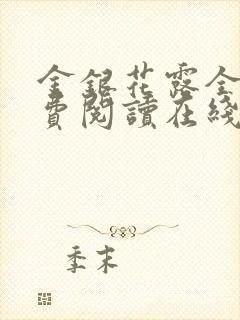 金銀花露全
費閱讀在綫
季末